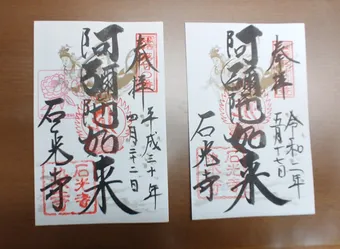 奉拝
平成三十年
四月二十二日
阿彌陀如来
石光寺
石光寺
奉拝
令和二年
五月十七日
阿彌陀如来
石光寺
石光寺